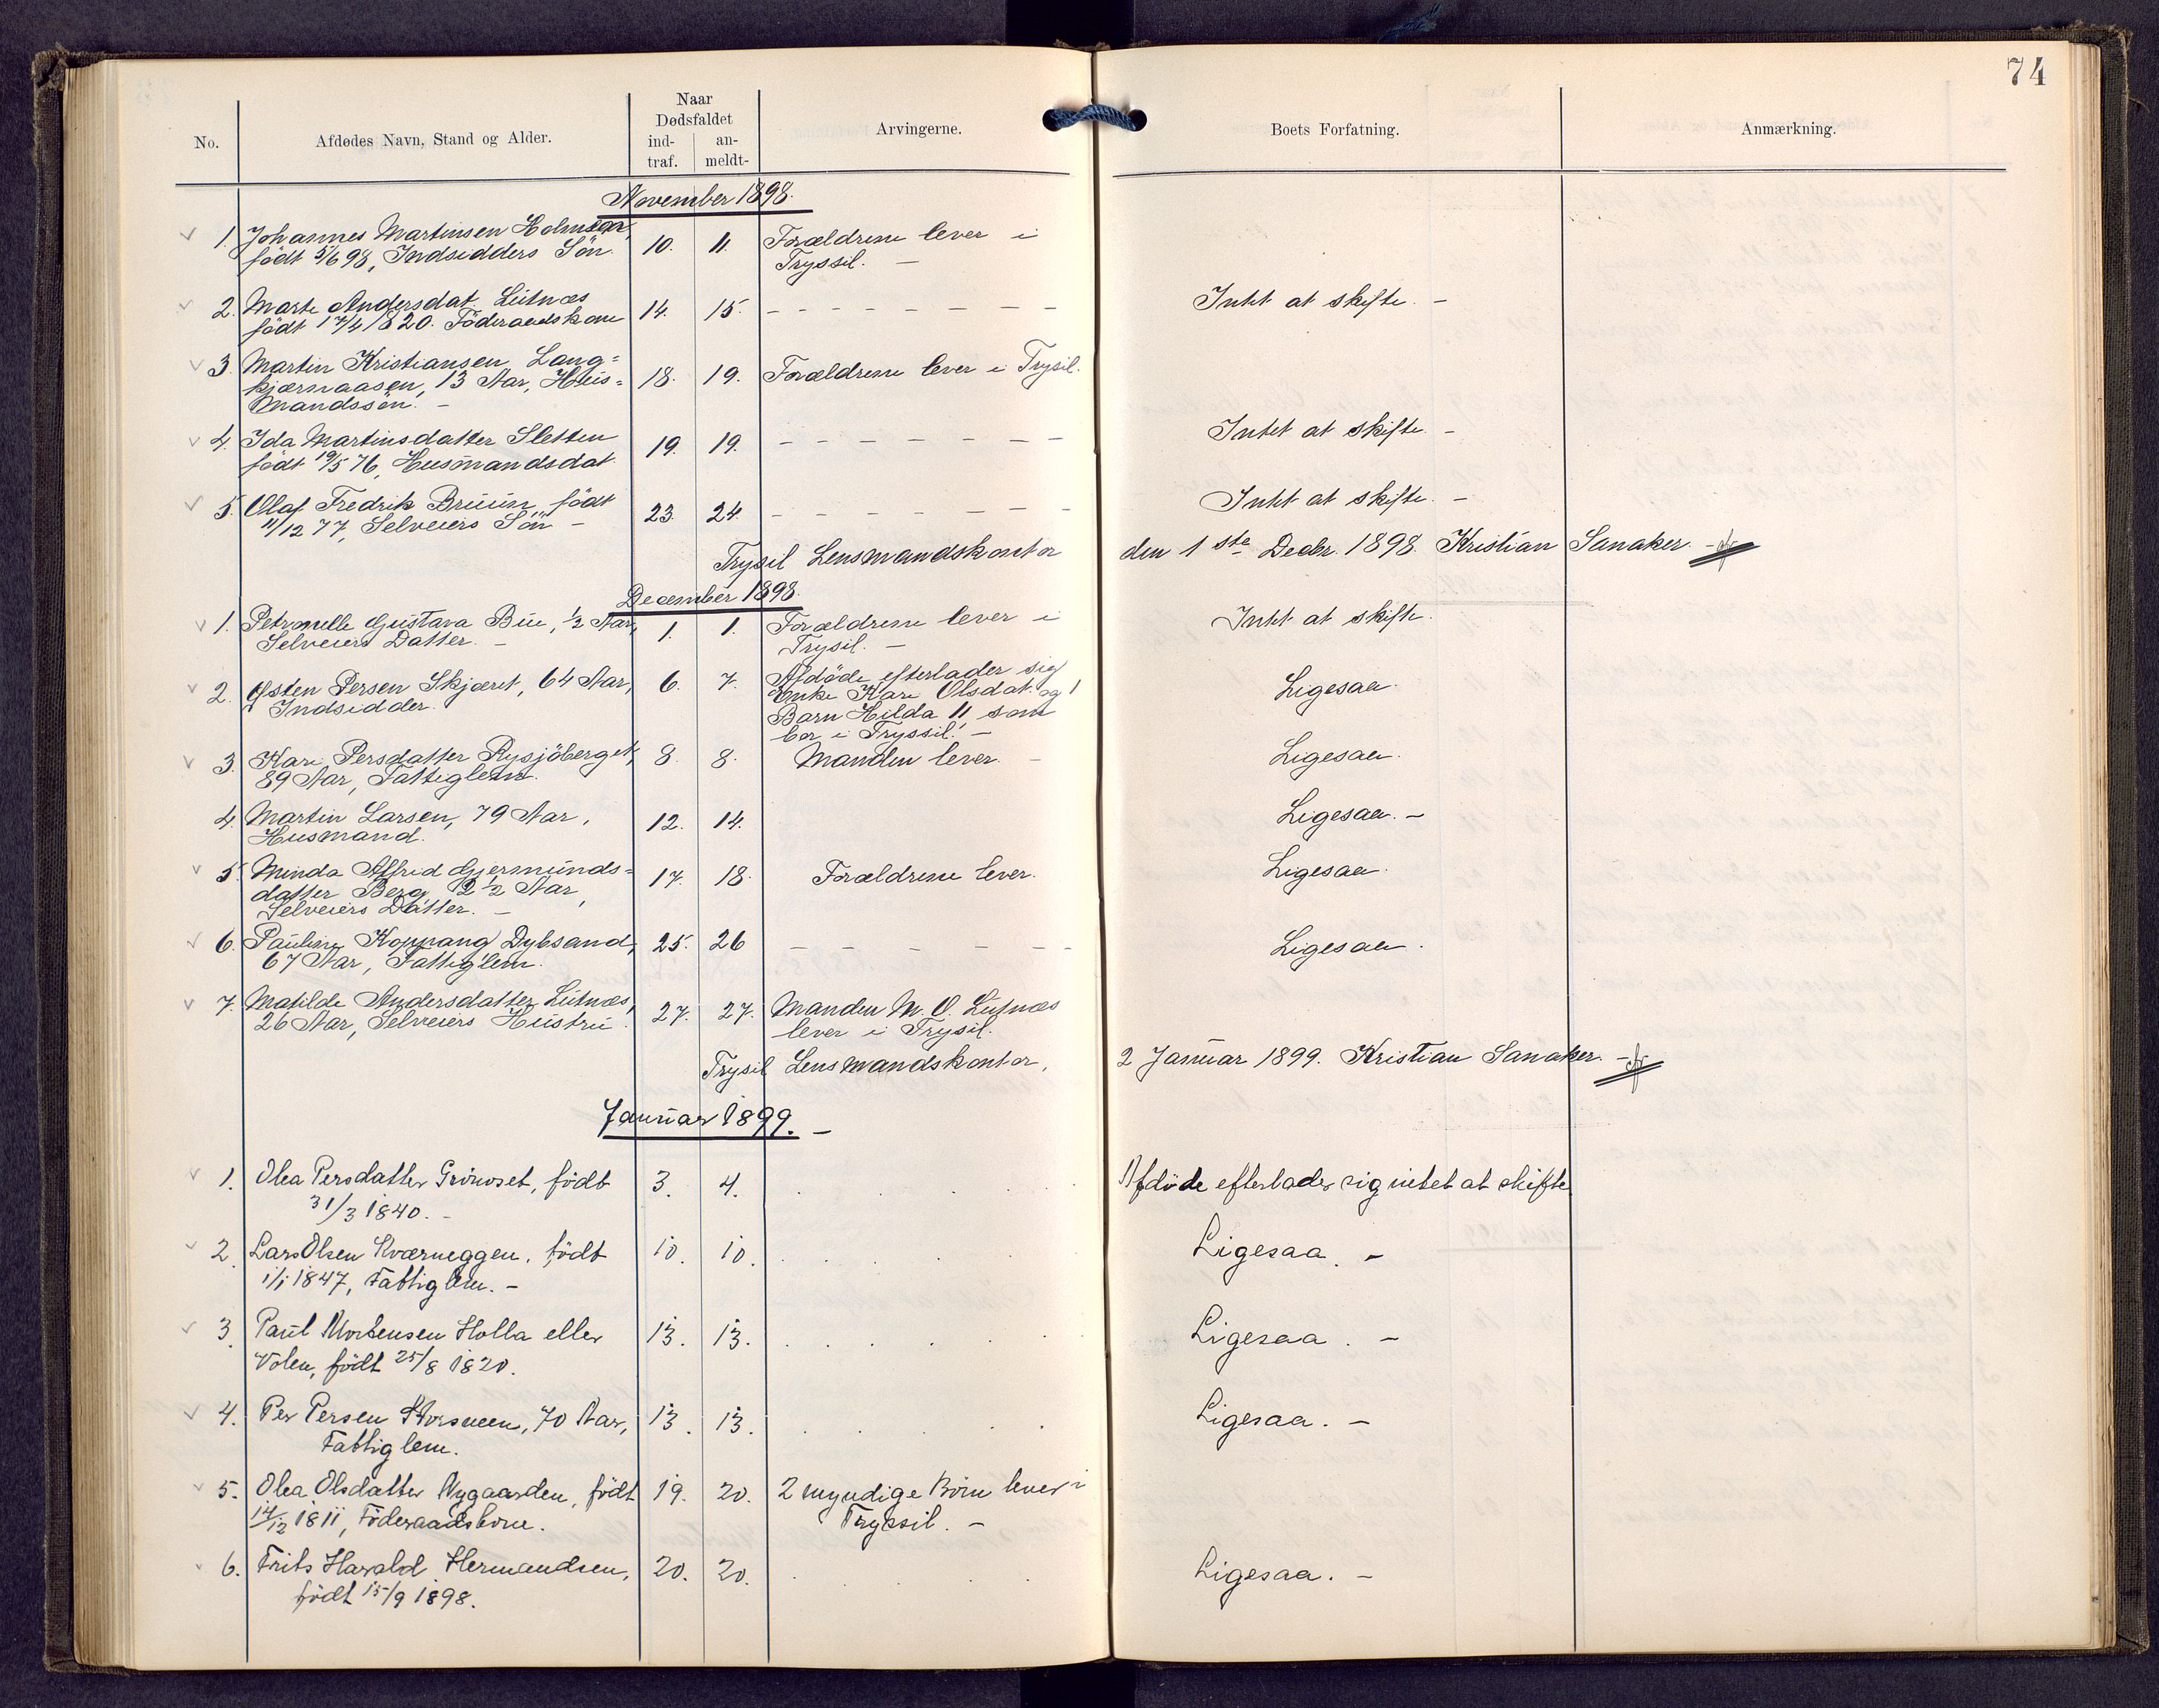 74
No.
Afdødes Navn, Stand og Alder.
Naar
Dødsfaldet
ind-
traf.
an-
meldt-
Arvingerne.
Boets Forfatning.
Anmærkning.
November 1898.
1. Johannes Martinsen
født 5/6 98, Indsidders Søn. 10. 11. Forældrene lever i
Tryssil. -
2. Marte Andersdat. Lutnæs
født 17/4 1820. Föderaadskone 14. 15. - - - - - - - Intet at skifte. -
3. Martin Kristiansen Lang=
kjærnaasen, 13 Aar, Hus= 18. 19. Forældrene lever i Trysil.
mandssøn. -
4. Ida Martinsdatter Sletten
født 19/5 76, Husmandsdat. 19. 19. - - - - - - - Intet at skifte. -
5. Olaf Fredrik Bruun, født
11/12 77, Selveiers Søn - 23. 24. - - - - - - - Intet at skifte. -
Trysil Lensmandskontor den 1ste Decbr. 1898. Kristian Sanaker. -
December 1898.
1. Petronelle Gustava Bue, 1/2 Aar,
Selveiers Datter. - 1. 1. Forældrene lever i
Trysil. - Intet at skifte.
2. Østen Persen Skjæret, 64 Aar,
Indsidder. 6. 7. Afdöde efterlader sig
Enke Kare Olsdat. og 1
Barn Hilda 11, som
bor i Tryssil. - Ligesaa.
3. Kari Persdatter Rysjöberget,
89 Aar, Fattiglem. 8. 8. Manden lever. - Ligesaa.
4. Martin Larsen, 79 Aar,
Husmand. 12. 14. Ligesaa. -
5. Minda Alfrid Gjermunds=
datter Berg, 2 1/2 Aar,
Selveiers Datter. - 17. 18. Forældrene lever. Ligesaa.
6. Pauline Koppang Dybsand,
67 Aar, Fattiglem. 25. 26 - - - - - - Ligesaa.
7. Matilde Andersdatter Lutnæs,
26 Aar, Selveiers Hustru. 27. 27. Manden M. O. Lutnæs
lever i Trysil.
Trysil Lensmandskontor, 2 Januar 1899. Kristian Sanaker. -
Januar 1899. -
1. Olea Persdatter Grönoset, födt
31/3 1840. - 3. 4. Afdöde efterlader sig intet at skifte
2. Lars Olsen Kværneggen, födt
1/1 1847, Fattiglem. - 10. 10. Ligesaa. -
3. Paul Mortensen Holla eller
Volen, födt 25/8 1820. 13. 13. Ligesaa. -
4. Per Persen Storsneen, 70 Aar,
Fattiglem. 13. 13. Ligesaa. -
5. Olea Olsdatter Nygaarden, födt
14/12 1811, Föderaadskone. 19. 20. 2 myndige Börn lever i
Tryssil. -
6. Frits Harald Hermandsen,
födt 15/9 1898. 20. 20. Ligesaa. -